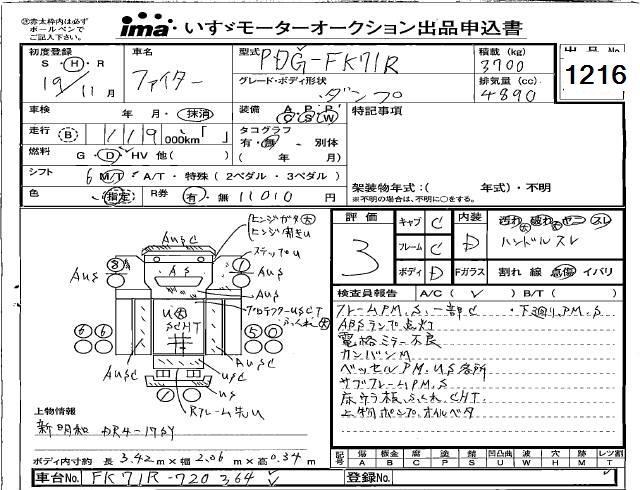 ※赤太枠内は必ず
ボールペンで
ご記入下さい。
ima いすゞモーターオークション出品申込書
初度登録 車名 型式 PDG-FK71R 積載 (kg) 3700 出品No. 1216
S・H・R 19/11月 ファイター グレード・ボディ形状 ダンプ 排気量 (cc) 4890
車検 年・月・抹消 装備 A P P C S W 特記事項
走行 B 119 000km「 」 タコグラフ 有・無 別体 ( 年 月)
燃料 G・D・HV 他( )
シフト 6 M/T・A/T・特殊 ( 2ペダル・3ペダル )
色 指定 R券 有・無 11010 円
架装物年式:( 年式)・不明
※不明の場合は、不明に○をする。
評価 3 キャブ C 内装 D 汚れ 大 破れ 大 ヤニ スレ
フレーム C ハンドルスレ
ボディ D Fガラス 割れ 線 点傷 イバリ
検査員報告 A/C( ✓ ) B/T( )
フレームP.M.S.一部C ・下廻りP.M.S
ABSランプ点灯
電格ミラー不良
カンバンM
ベッセルP.M.US各所
サブフレームP.M.S
床ウラ板ふくれ.CHT.
上物ポンプ.オイルベタ
ヒンジガタ 大
ヒンジ部きU
ステップU
AUSC
AUS
AS
AUS
AUS
プロテクターUSCT
ふくれ 大
U 大
SCHT
AUSC
AUSC
USC
US
Rフレーム先U
上物情報
新明和
ボディ内寸約 長 3.42 m×幅 2.06 m×高 0.34 m
記号 傷 A 板金 B 腐 C 塗 P 錆 S 凹凸曲 U 波 W 穴 H 跡 M レンズ割 T
車台No. FK71R-720364 ✓ 登録No.